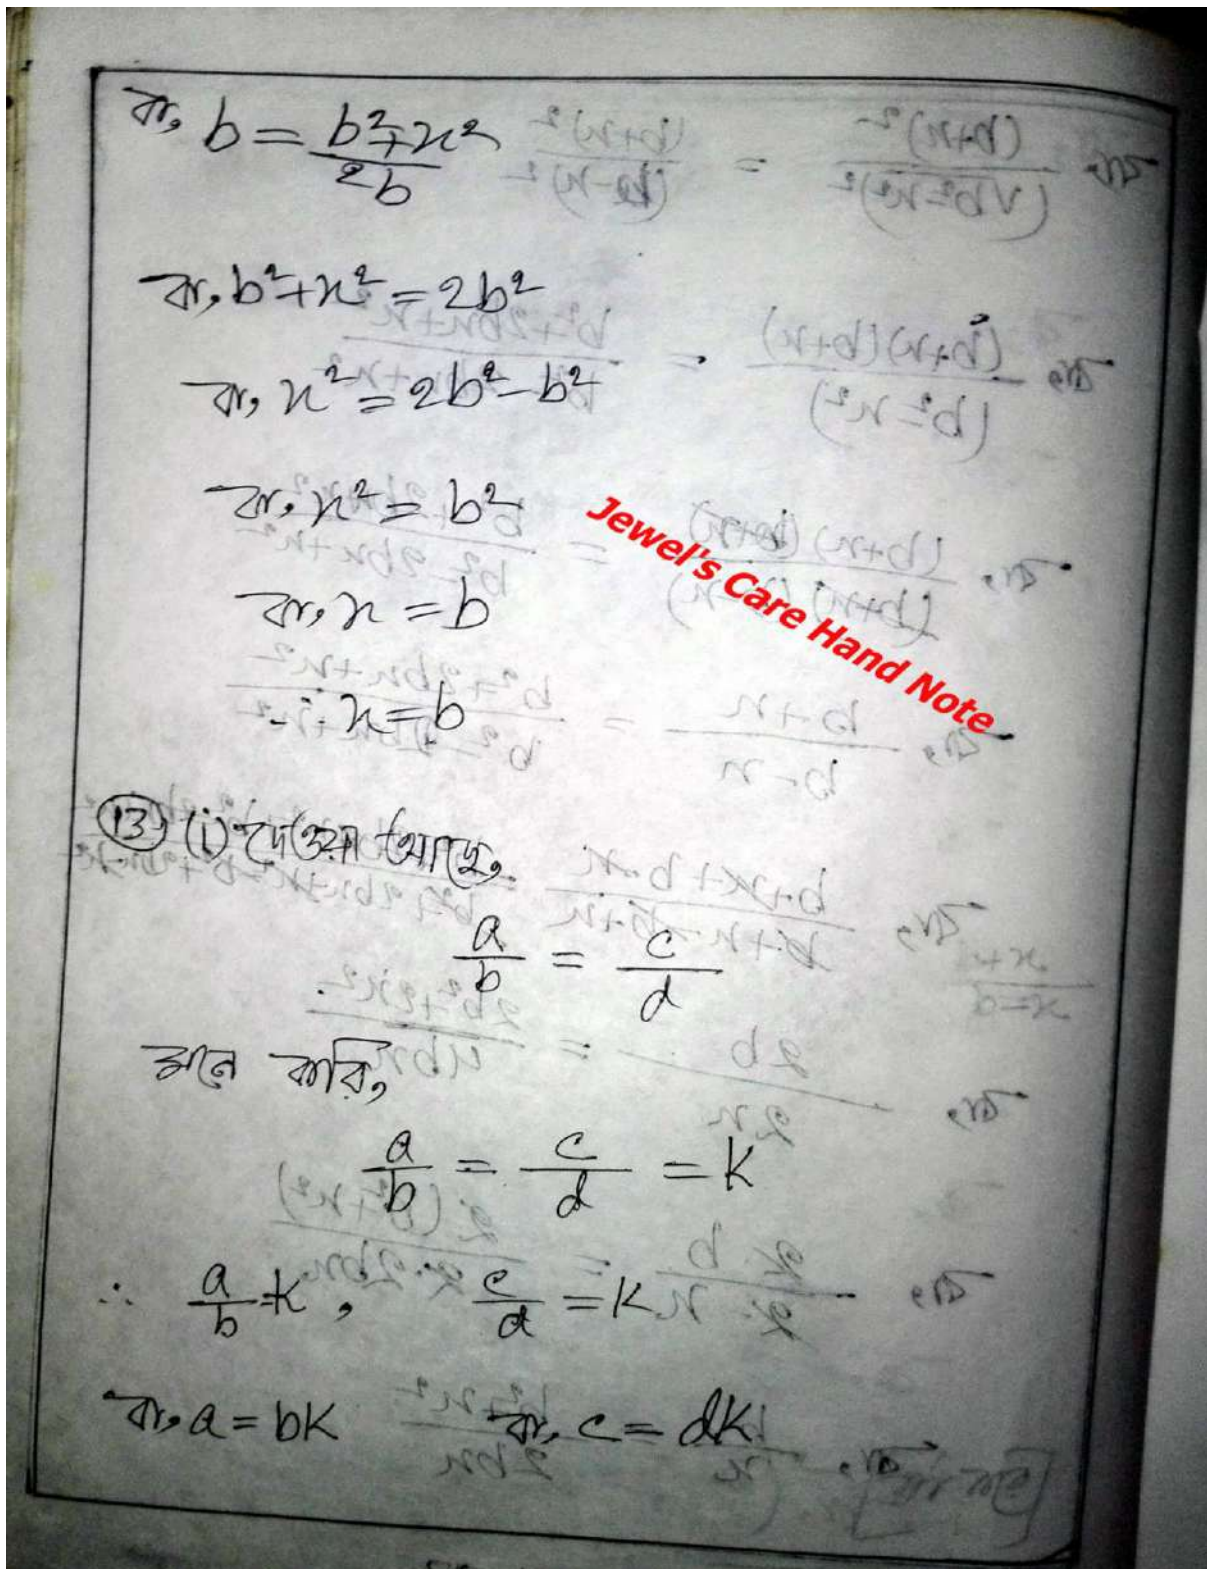 বা, b = b²+x² / 2b
বা, b²+x² = 2b²
বা, x² = 2b²-b²
বা, x² = b²
বা, x = b
∴ x = b
Jewel's Care Hand Note
13 (i) দেওয়া আছে,
a/b = c/d
মনে করি,
a/b = c/d = K
∴ a/b = K, c/d = K
বা, a = bK বা, c = dK